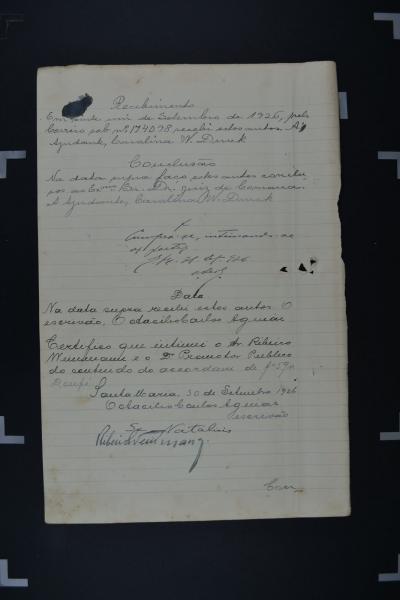 Recebimento
Em vinte um de Setembro de 1926, pelo
Correio sob nº 174098 recebi estes autos. A
Ajudante, Carolina W. Druck
Conclusão
Na data supra faço estes autos conclu
sos ao Exmo Snr. Dr. Juiz de Comarca.
A Ajudante, Carolina W. Druck
Cumpra-se, intimando-se
as partes
Data
Na data supra recebi estes autos. O
escrivão, Octacilio Carlos Aguiar
Certifico que intimei o Sr Ribeiro
e o Dr Promotor Publico
do conteudo do accordam de fs
Santa Maria, 30 de Setembro 1926
Octacilio Carlos Aguiar
escrivão